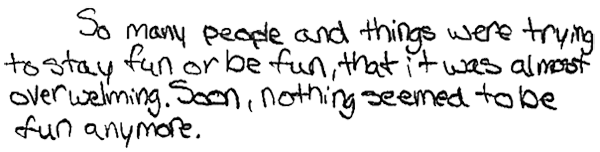 So many people and things were trying
to stay fun or be fun, that it was almost
overwelming. Soon, nothing seemed to be
fun anymore.